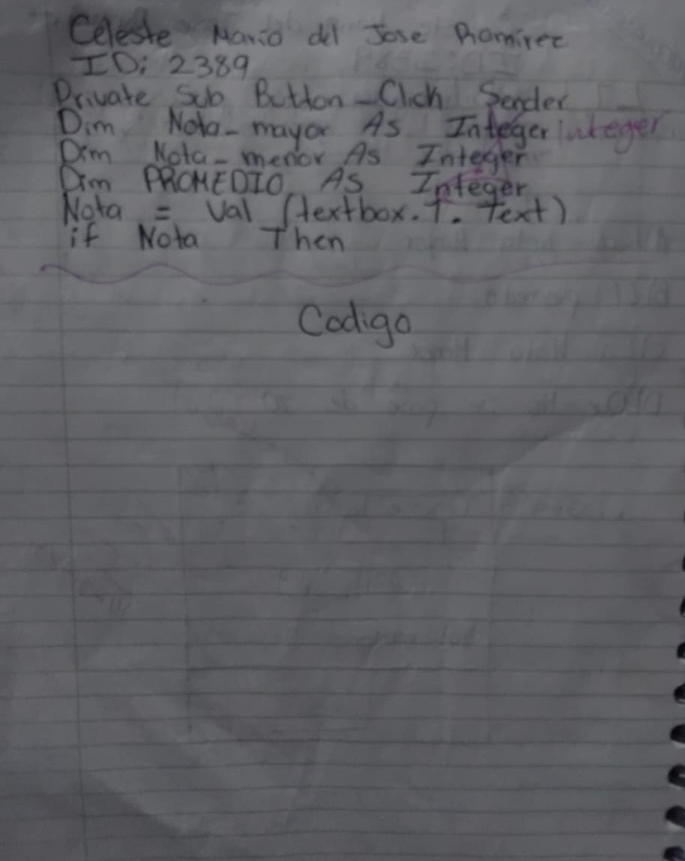 Celeste Mario del Jose Ramirez
ID: 2389
Private Sub Button-Click Sender
Dim Nota-mayor As Integer Integer
Dim Nota-menor As Integer
Dim PROMEDIO As Integer
Nota = Val (textbox.1. Text)
if Nota Then
Codigo